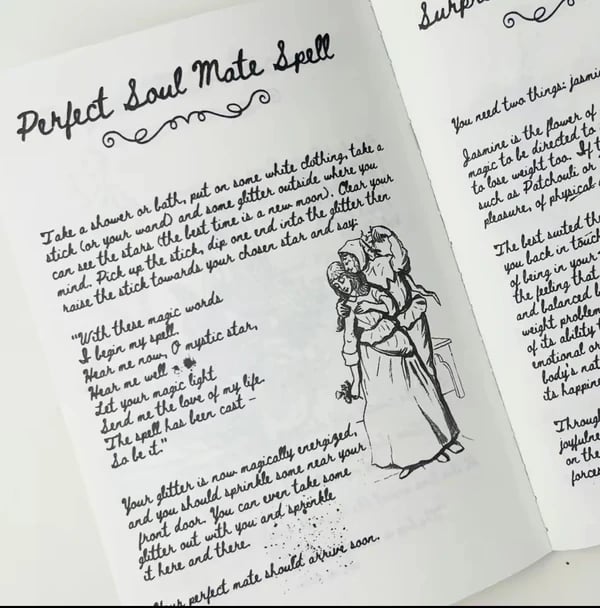 Perfect Soul Mate Spell
Take a shower or bath, put on some white clothing, take a
stick (or your wand) and some glitter outside where you
can see the stars (the best time is a new moon). Clear your
mind. Pick up the stick, dip one end into the glitter then
raise the stick towards your chosen star and say:
"With these magic words
I begin my spell.
Hear me now, O mystic star,
Hear me well
Let your magic light
Send me the love of my life.
The spell has been cast –
So be it."
Your glitter is now magically energized,
and you should sprinkle some near your
front door. You can even take some
glitter out with you and sprinkle
it here and there.
Your perfect mate should arrive soon.
You need two things: jasmin
Jasmine is the flower of
magic to be directed to
to lose weight too. If t
such as Patchouli or
pleasure, of physical
The best suited th
you back in touch
of being in your
the feeling that
and balanced b
weight problem
of its ability t
emotional or
body's nat
its happin
Throug
joyfulne
on the
forces